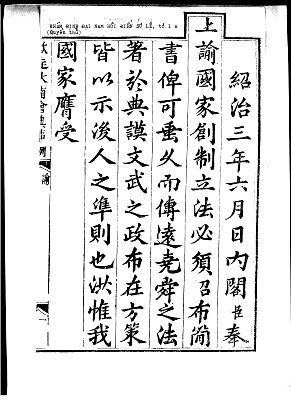 KHÂM ĐỊNH ĐẠI NAM HỘI ĐIỂN SỰ LỆ, tờ 1 a
(Quyển thủ)
紹治三年六月日内閣臣奉
上諭國家創制立法必須召布簡
書俾可垂久而傳遠堯舜之法
著於典謨文武之政布在方策
皆以示後人之準則也洪惟我
國家膺受
欽定大南會典事例 諭 一